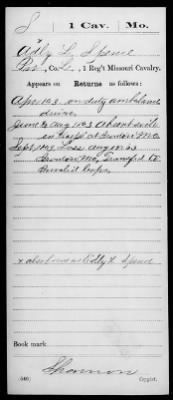 S 1 Cav. Mo.
Adly L. Spence
Pvt, Co. L, 1 Reg't Missouri Cavalry.
Appears on Returns as follows:
Apr 1863 on duty ambulance
driver
June & Aug 1863 Absent sick
in hosp at Ironton Mo.
Sept 1863 Loss Aug 1863
Ironton Mo, Transf'd to
Invalid Corps.
x also borne as Adly L. Spence
Book mark
Shannon
(546) Copyist.